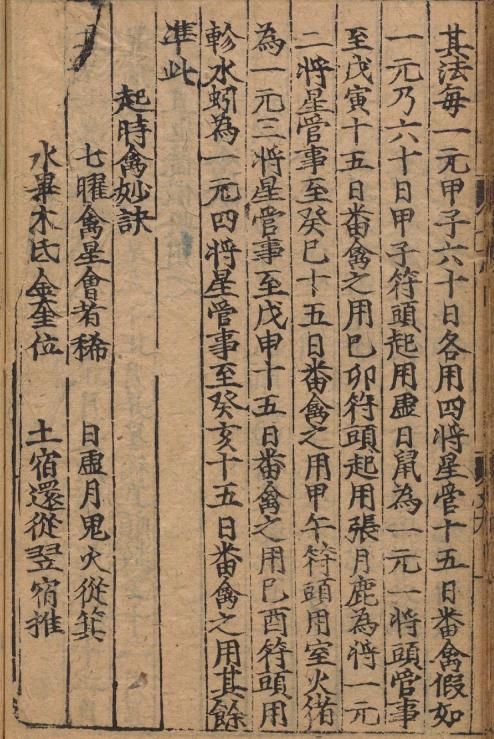 其法每一元甲子六十日各用四將星管十五日番禽假如
一元乃六十日甲子符頭起用虚日鼠為一元一將頭管事
至戊寅十五日番禽之用巳卯符頭起用張月鹿為將一元
二將星管事至癸巳十五日番禽之用甲午符頭用室火猪
為一元三將星管事至戊申十五日番禽之用巳酉符頭用
軫水蚓為一元四將星管事至癸亥十五日番禽之用其餘
準此
起時禽妙訣
七曜禽星會者稀 日虚月鬼火從箕
水畢木氐金奎位 土宿還從翌宿推